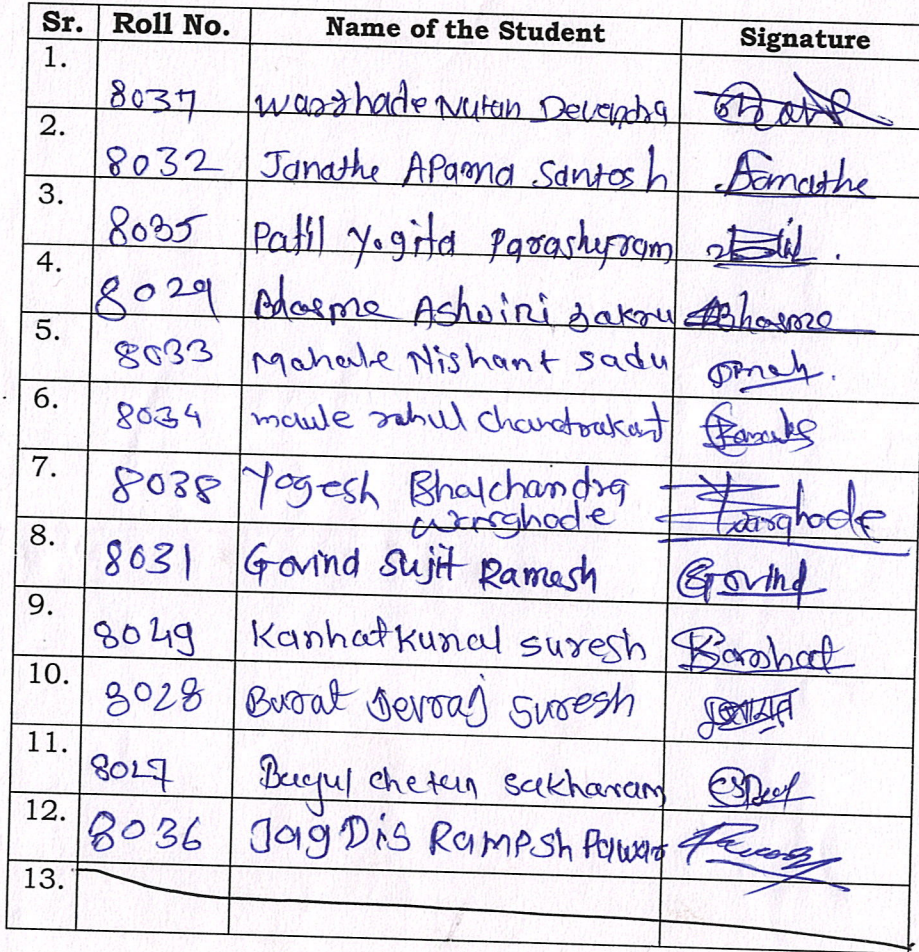 Sr. Roll No. Name of the Student Signature
1. 8037 Warghade Nutan Devendra
2. 8032 Janathe APama Santosh Janathe
3. 8035 Patil Yogita Parashuram
4. 8029 Bhasme Ashvini Sakru Bhasme
5. 8033 Mahale Nishant sadu
6. 8034 maule rahul Chandrakant
7. 8038 Yogesh Bhalchandra
warghode Warghode
8. 8031 Govind Sujit Ramesh Govind
9. 8049 Kanhat Kunal suresh Kanhat
10. 8028 Barat Devraj Suresh
11. 8027 Bagul chetan sakharam
12. 8036 JagDis Ramesh Pawar
13.